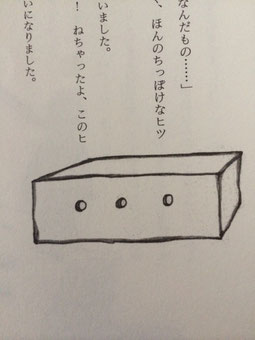 なんだもの……」
、ほんのちっぽけなヒツ
いました。
！　ねちゃったよ、このヒ
いになりました。